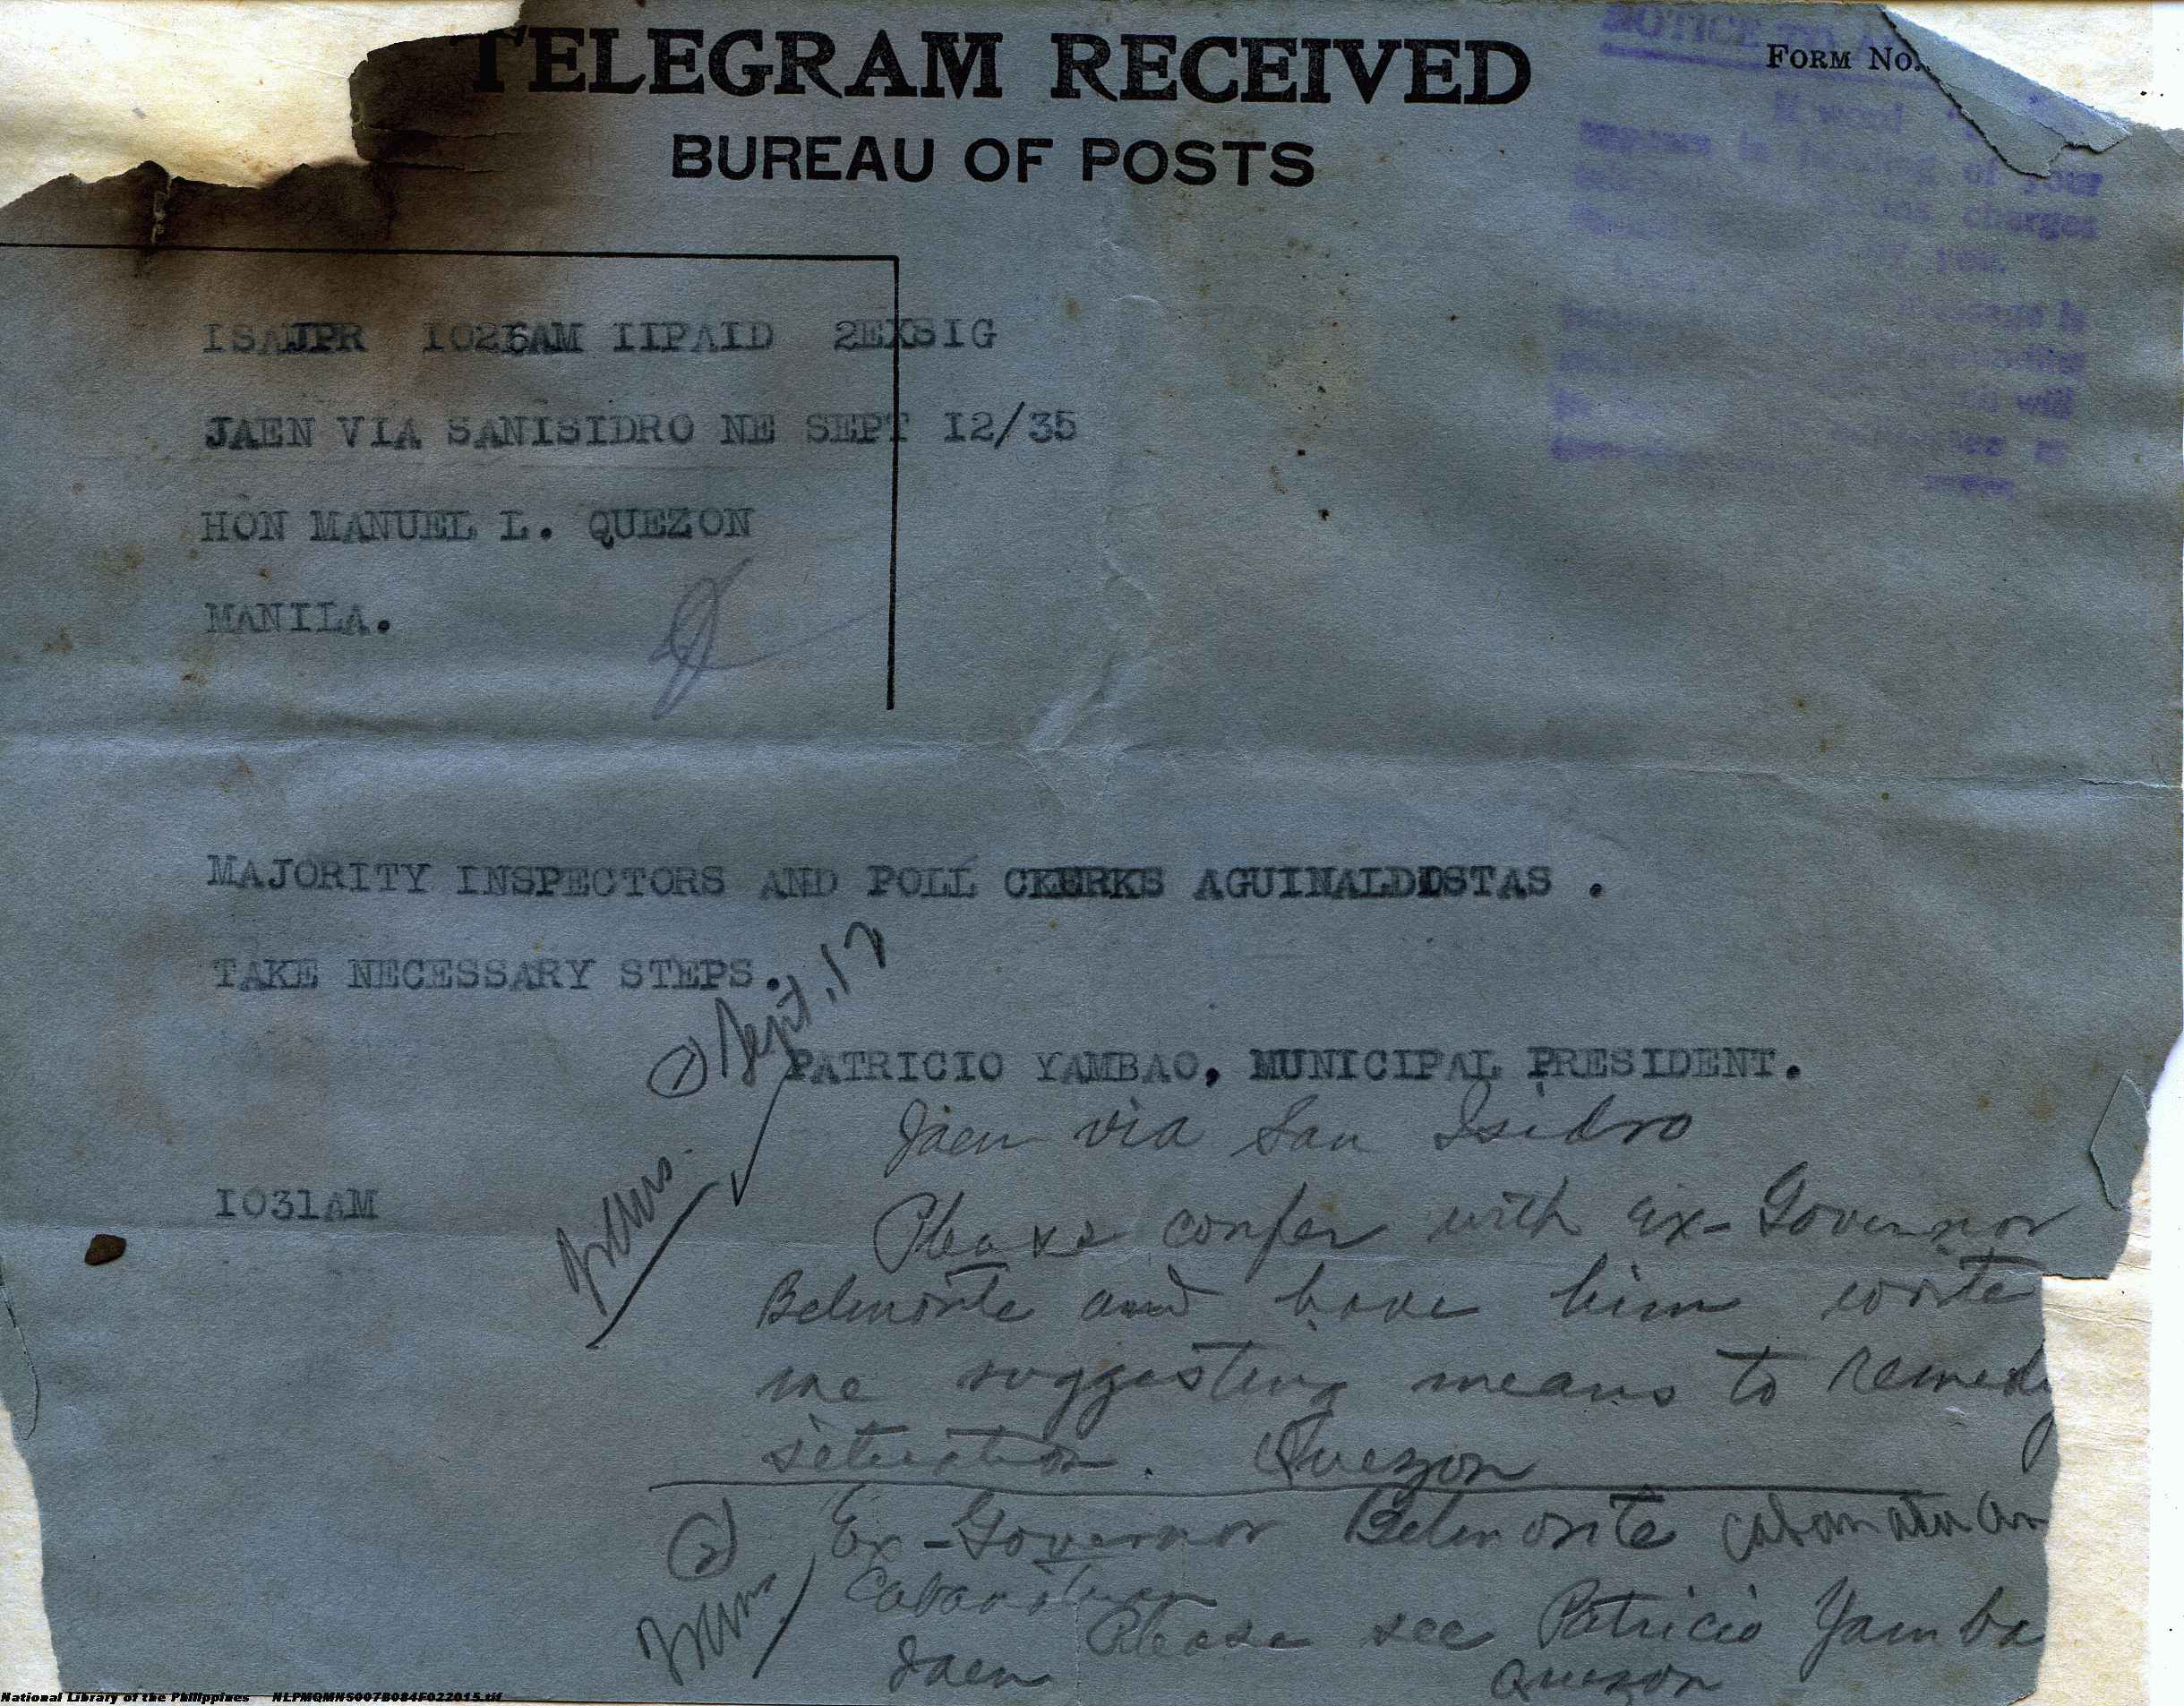 TELEGRAM RECEIVED
BUREAU OF POSTS
FORM NO.
NOTICE TO
If word
of your
charges
you.
is
will
ISAJPR 1026AM IIPAID 2EXSIG
JAEN VIA SANISIDRO NE SEPT I2/35
HON MANUEL L. QUEZON
MANILA.
MAJORITY INSPECTORS AND POLL CKERKS AGUINALDISTAS .
TAKE NECESSARY STEPS.
① Sept. 12
PATRICIO YAMBAO, MUNICIPAL PRESIDENT.
Jaen via San Isidro
I031AM
Please confer with ex-Governor
Belmonte and have him write
me suggesting means to remedy
situation. Quezon
② Ex-Governor Belmonte Cabanatuan
Cabanatuan
Please see Patricio Yamba
Jaen Quezon
National Library of the Philippines NLPMQMNS007B084F022015.tif